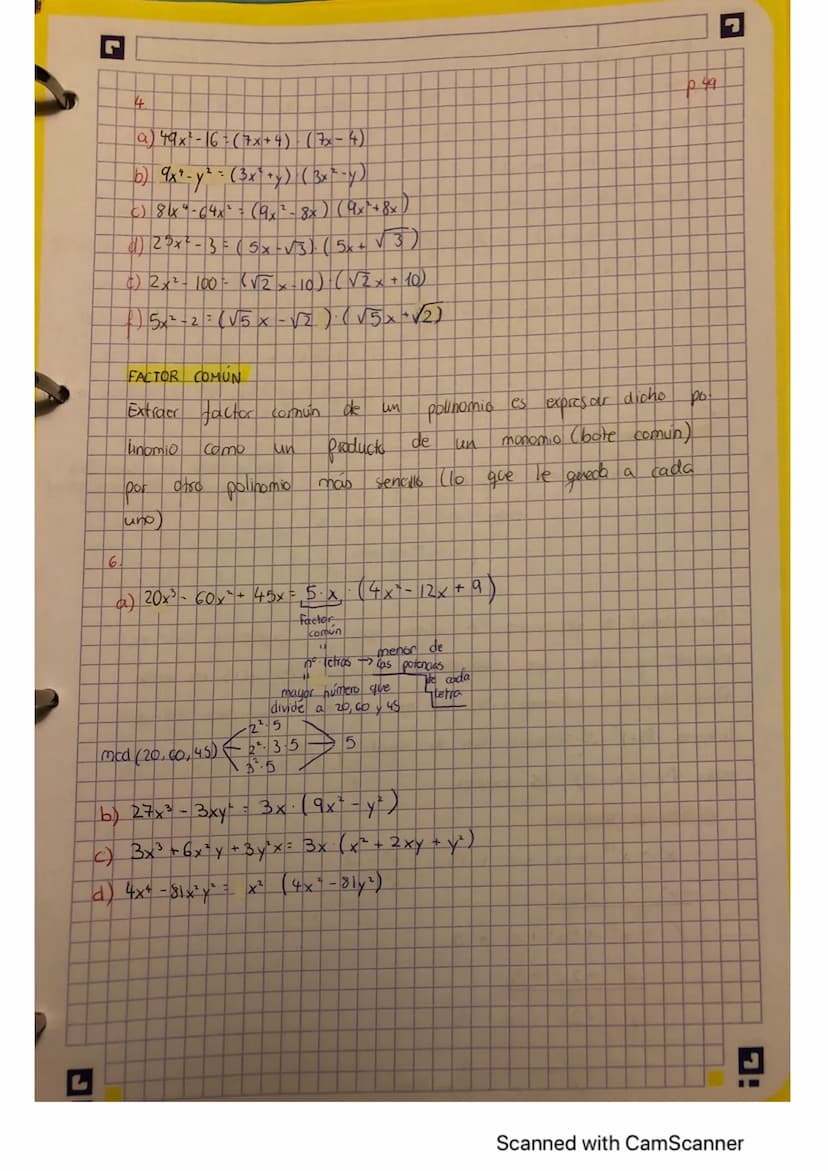 p 49
4.
a) 49x² - 16 = (7x + 4) · (7x - 4)
b) 9x⁴ - y² = (3x² + y) · (3x² - y)
c) 81x⁴ - 64x² = (9x² - 8x) (9x² + 8x)
d) 25x² - 3 = (5x - √3) · (5x + √3)
e) 2x² - 100 = (√2 x - 10) · (√2 x + 10)
f) 5x² - 2 = (√5 x - √2) · (√5 x + √2)
FACTOR COMÚN
Extraer factor común de un polinomio es expresar dicho po-
linomio como un producto de un monomio (bote común)
por otro polinomio más sencillo (lo que le queda a cada
uno)
6.
a) 20x³ - 60x² + 45x = 5 · x · (4x² - 12x + 9)
factor
común
"
nº letras → menor de
las potencias
de cada
letra
"
mayor número que
divide a 20, 60 y 45
2² · 5
mcd (20, 60, 45) 2² · 3 · 5 5
3² · 5
b) 27x³ - 3xy² = 3x · (9x² - y²)
c) 3x³ + 6x²y + 3y²x = 3x · (x² + 2xy + y²)
d) 4x⁴ - 81x²y² = x² (4x² - 81y²)
Scanned with CamScanner